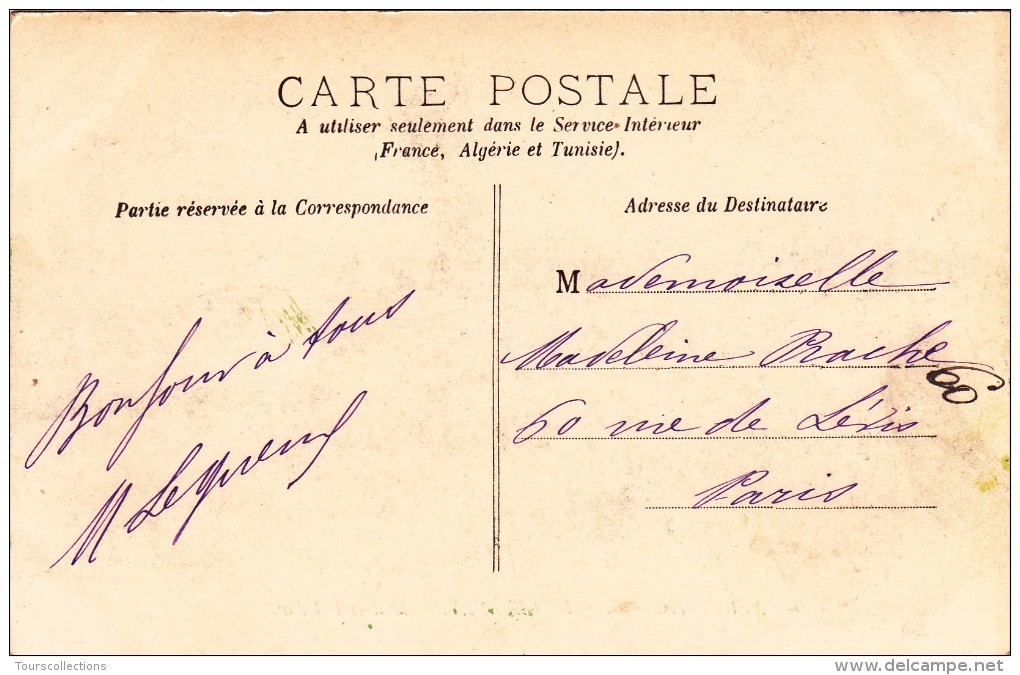 CARTE POSTALE
A utiliser seulement dans le Service Intérieur
(France, Algérie et Tunisie).
Partie réservée à la Correspondance
Bonjour à tous
M Lequeux
Adresse du Destinataire
Mademoiselle
Madeleine Rache
60
60 rue de Lévis
Paris
Tourscollections
www.delcampe.net